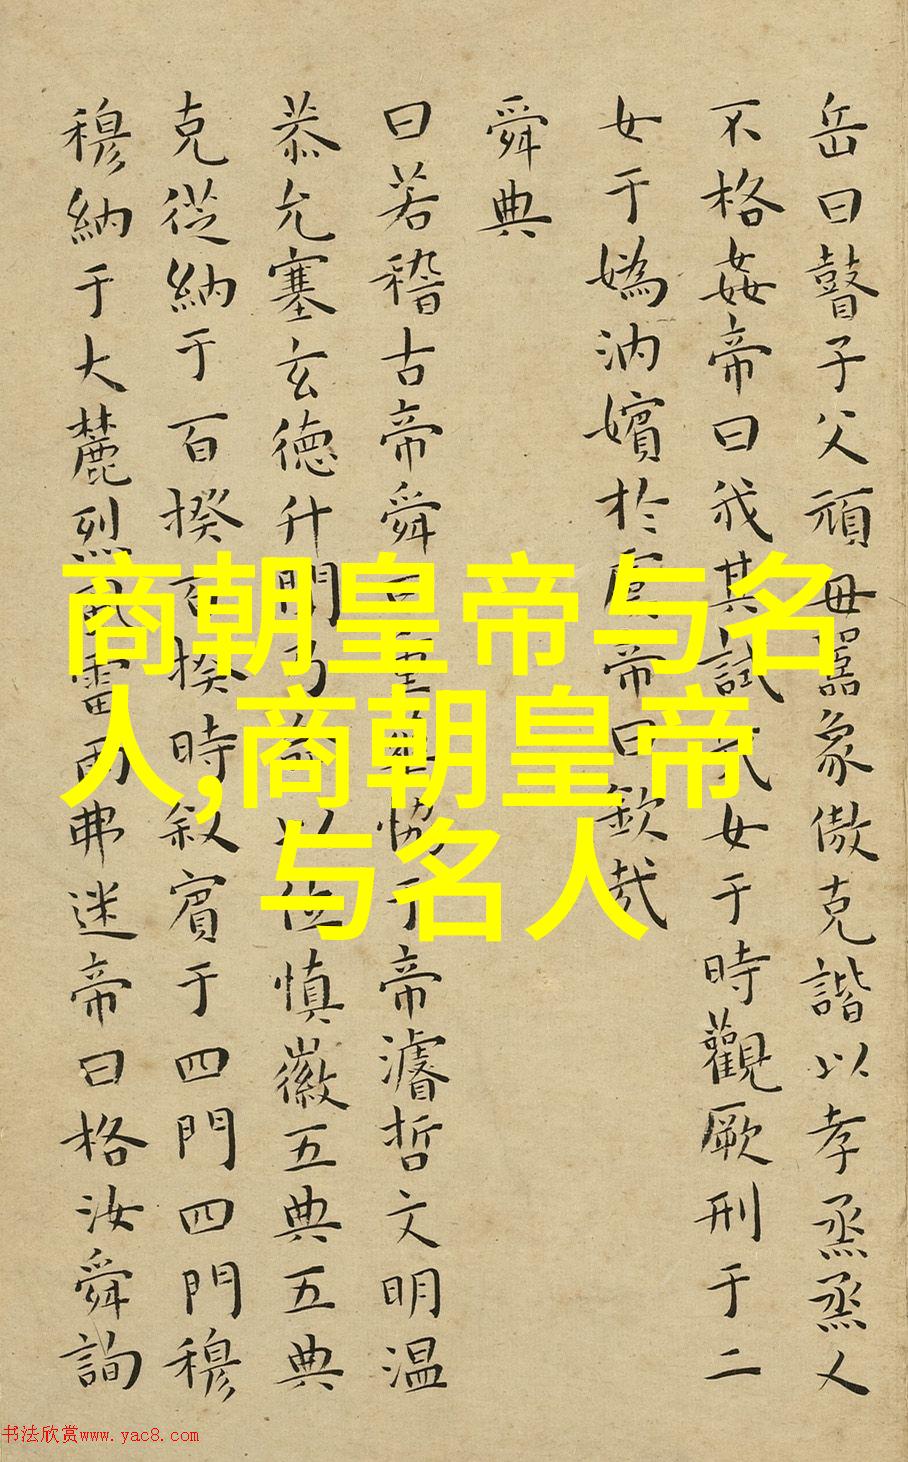 岳曰瞽子父頑毋嚚象傲克諧以孝烝烝乂
不格姦帝曰我其試哉女于時觀厥刑于二
女于媯汭嬪於虞帝曰欽哉
舜典
曰若稽古帝舜曰重華協于帝濬哲文明温
恭允塞玄德升聞乃命以位慎徽五典五典
克從納于百揆百揆時敘賓于四門四門穆
穆納于大麓烈風雷雨弗迷帝曰格汝舜詢
商朝皇帝与名
人,商朝皇帝
与名人
书法欣赏www.yac8.com